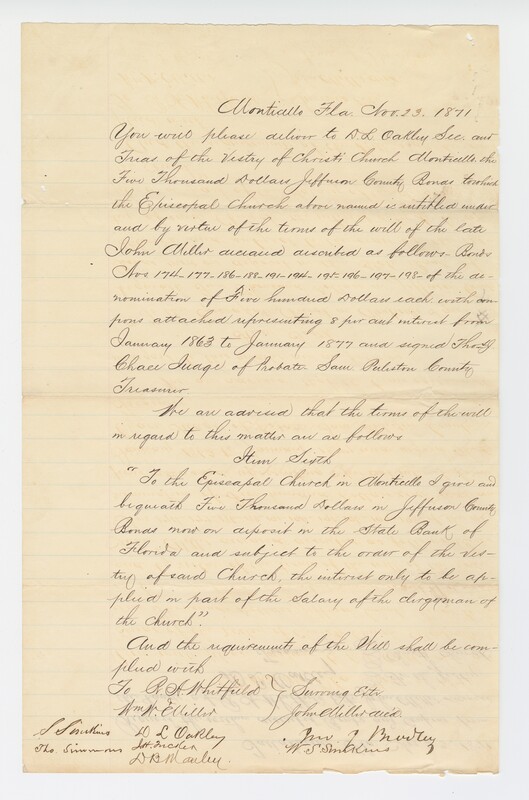 Monticello Fla. Nov. 23. 1871
You will please deliver to D. L. Oakley Sec. and
Treas of the Vestry of Christ Church Monticello, the
Five Thousand Dollars Jefferson County Bonds to which
the Episcopal Church above named is intitled under
and by virtue of the terms of the will of the late
John Miller deceased described as follows- Bonds
Nos 174-177-186-188-191-194-195-196-197-198- of the de-
nomination of Five hundred Dollars each with cou
pons attached representing 8 per cut interest from
January 1863 to January 1877 and signed Thos.
Chace Judge of Probate Sam Puleston County
Treasurer
We are advised that the terms of the will
in regard to this matter are as follows
Item Sixth
"To the Episcapal Church in Monticello I give and
bequeath Five Thousand Dollars in Jefferson County
Bonds now on deposit in the State Bank of
Florida and subject to the order of the Ves-
try of said Church, the interest only to be ap-
plied in part of the Salary of the clergyman of
the Church".
And the requirements of the Will shall be com-
plied with
To R. A. Whitfield } Surviving Extr
Wm W. Miller John Miller decd.
S Simkins D L Oakley Jno J Bradley
Tho. Simmons W S Simkins
D B